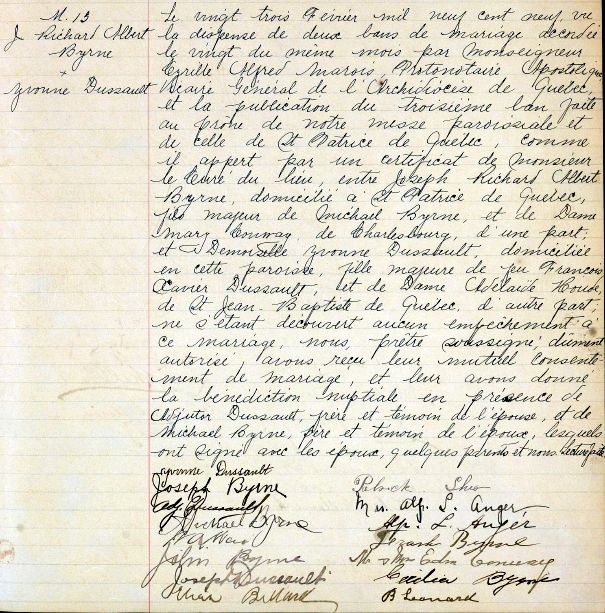 M. 13
J Richard Albert
Byrne
+
Yvonne Dussault
Le vingt trois Fevrier mil neuf cent neuf, vu
la dispense de deux bans de mariage accordée
le vingt du même mois par Monseigneur
Cyrille Alfred Marois Protonotaire Apostolique
Vicaire Général de l'Archidiocèse de Quebec,
et la publication du troisième ban faite
au prône de notre messe paroissiale et
de celle de St Patrice de Quebec, comme
il appert par un certificat de Monsieur
le Curé du lieu, entre Joseph Richard Albert
Byrne, domicilié à St Patrice de Quebec,
fils majeur de Michael Byrne, et de Dame
Mary Conway, de Charlesbourg, d'une part,
et Demoiselle Yvonne Dussault, domiciliée
en cette paroisse, fille majeure de feu François
Xavier Dussault, et de Dame Adelaide Houde,
de St Jean-Baptiste de Quebec, d'autre part;
ne s'étant découvert aucun empêchement à
ce mariage, nous, prêtre soussigné, dûment
autorisé, avons reçu leur mutuel consente
ment de mariage, et leur avons donné
la bénédiction nuptiale en présence de
Adjutor Dussault, frère et témoin de l'épouse, et de
Michael Byrne, père et témoin de l'époux, lesquels
ont signé avec les époux, quelques parents et nous. Lecture faite
Yvonne Dussault
Joseph Byrne
Adj Dussault
Michael Byrne
John Byrne
Joseph Dussault
Patrick
Mrs. Alf. L. Anger,
Alf. L. Anger
Byrne
Mr & Mrs Edm
Cecilia Byrne
B Leonard